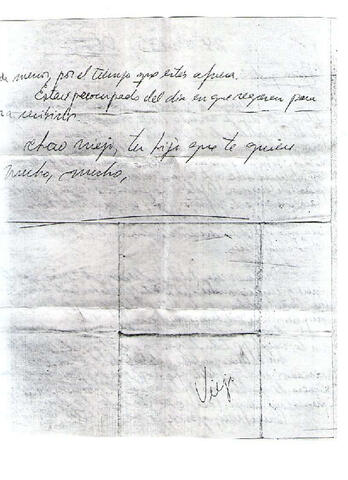 de menos, por el tiempo que estés afuera.
Estaré preocupado del día en que regresen para
Chao viejo, tu hijo que te quiere
mucho, mucho,